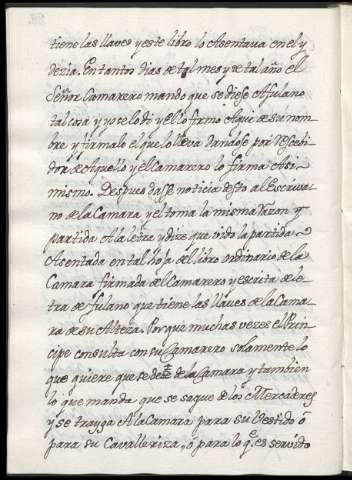 tiene las llaves y este libro lo Asentava en el y
dezia. En tantos dias de tal mes y de tal año el
Señor Camarero mando que se diese A fulano
tal cosa y yo se lo di y el lo firmo Aqui de su nom
bre y firmalo el que lo lleva dandose por Rescebi
dor de Aquello y el Camarero lo firma Asi
mismo. Despues dasse noticia desto al Escriua
no de la Camara y el toma la misma Razon y
partida A la letra y dize que vido la partida
Asentada en tal hoja del libro ordinario de la
Camara firmada del Camarero y escrita de le
tra de fulano que tiene las llaves de la Cama
ra de su Alteza. Porque muchas vezes el Prin
cipe consulta con su Camarero solamente lo
que quiere que se de de la Camara y tambien
lo que manda que se saque de los Mercaderes
y se trayga A la Camara para su Vestido ó
para su Cavalleriza, ó para lo q es servido